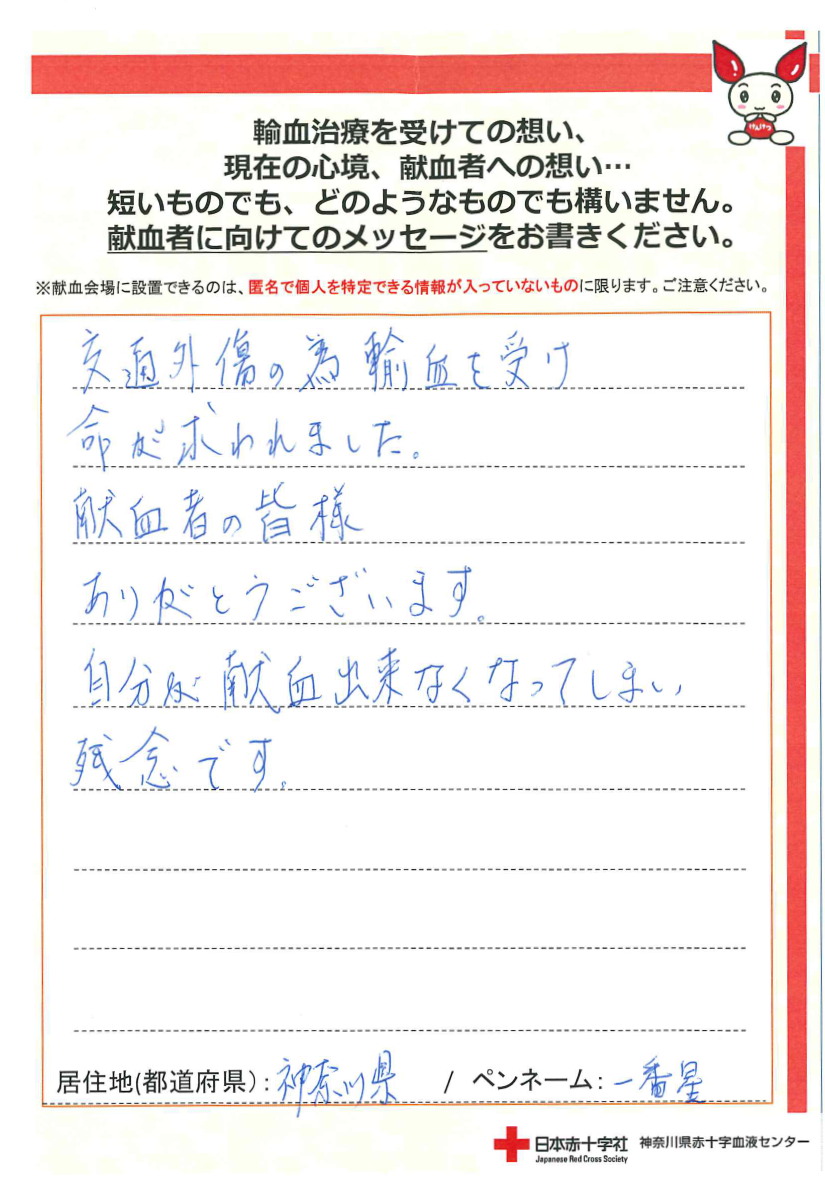 けんけつ
輸血治療を受けての想い、
現在の心境、献血者への想い…
短いものでも、どのようなものでも構いません。
献血者に向けてのメッセージをお書きください。
※献血会場に設置できるのは、匿名で個人を特定できる情報が入っていないものに限ります。ご注意ください。
交通外傷の為輸血を受け
命が求われました。
献血者の皆様
ありがとうございます。
自分が献血出来なくなってしまい
残念です。
居住地(都道府県):神奈川県 / ペンネーム:一番星
日本赤十字社 神奈川県赤十字血液センター
Japanese Red Cross Society